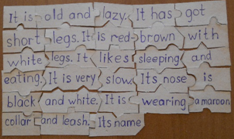 It is old and lazy. It has got
short legs. It is red brown with
white legs. It likes sleeping and
eating. It is very slow. Its nose is
black and white. It is wearing a maroon
collar and leash. Its name